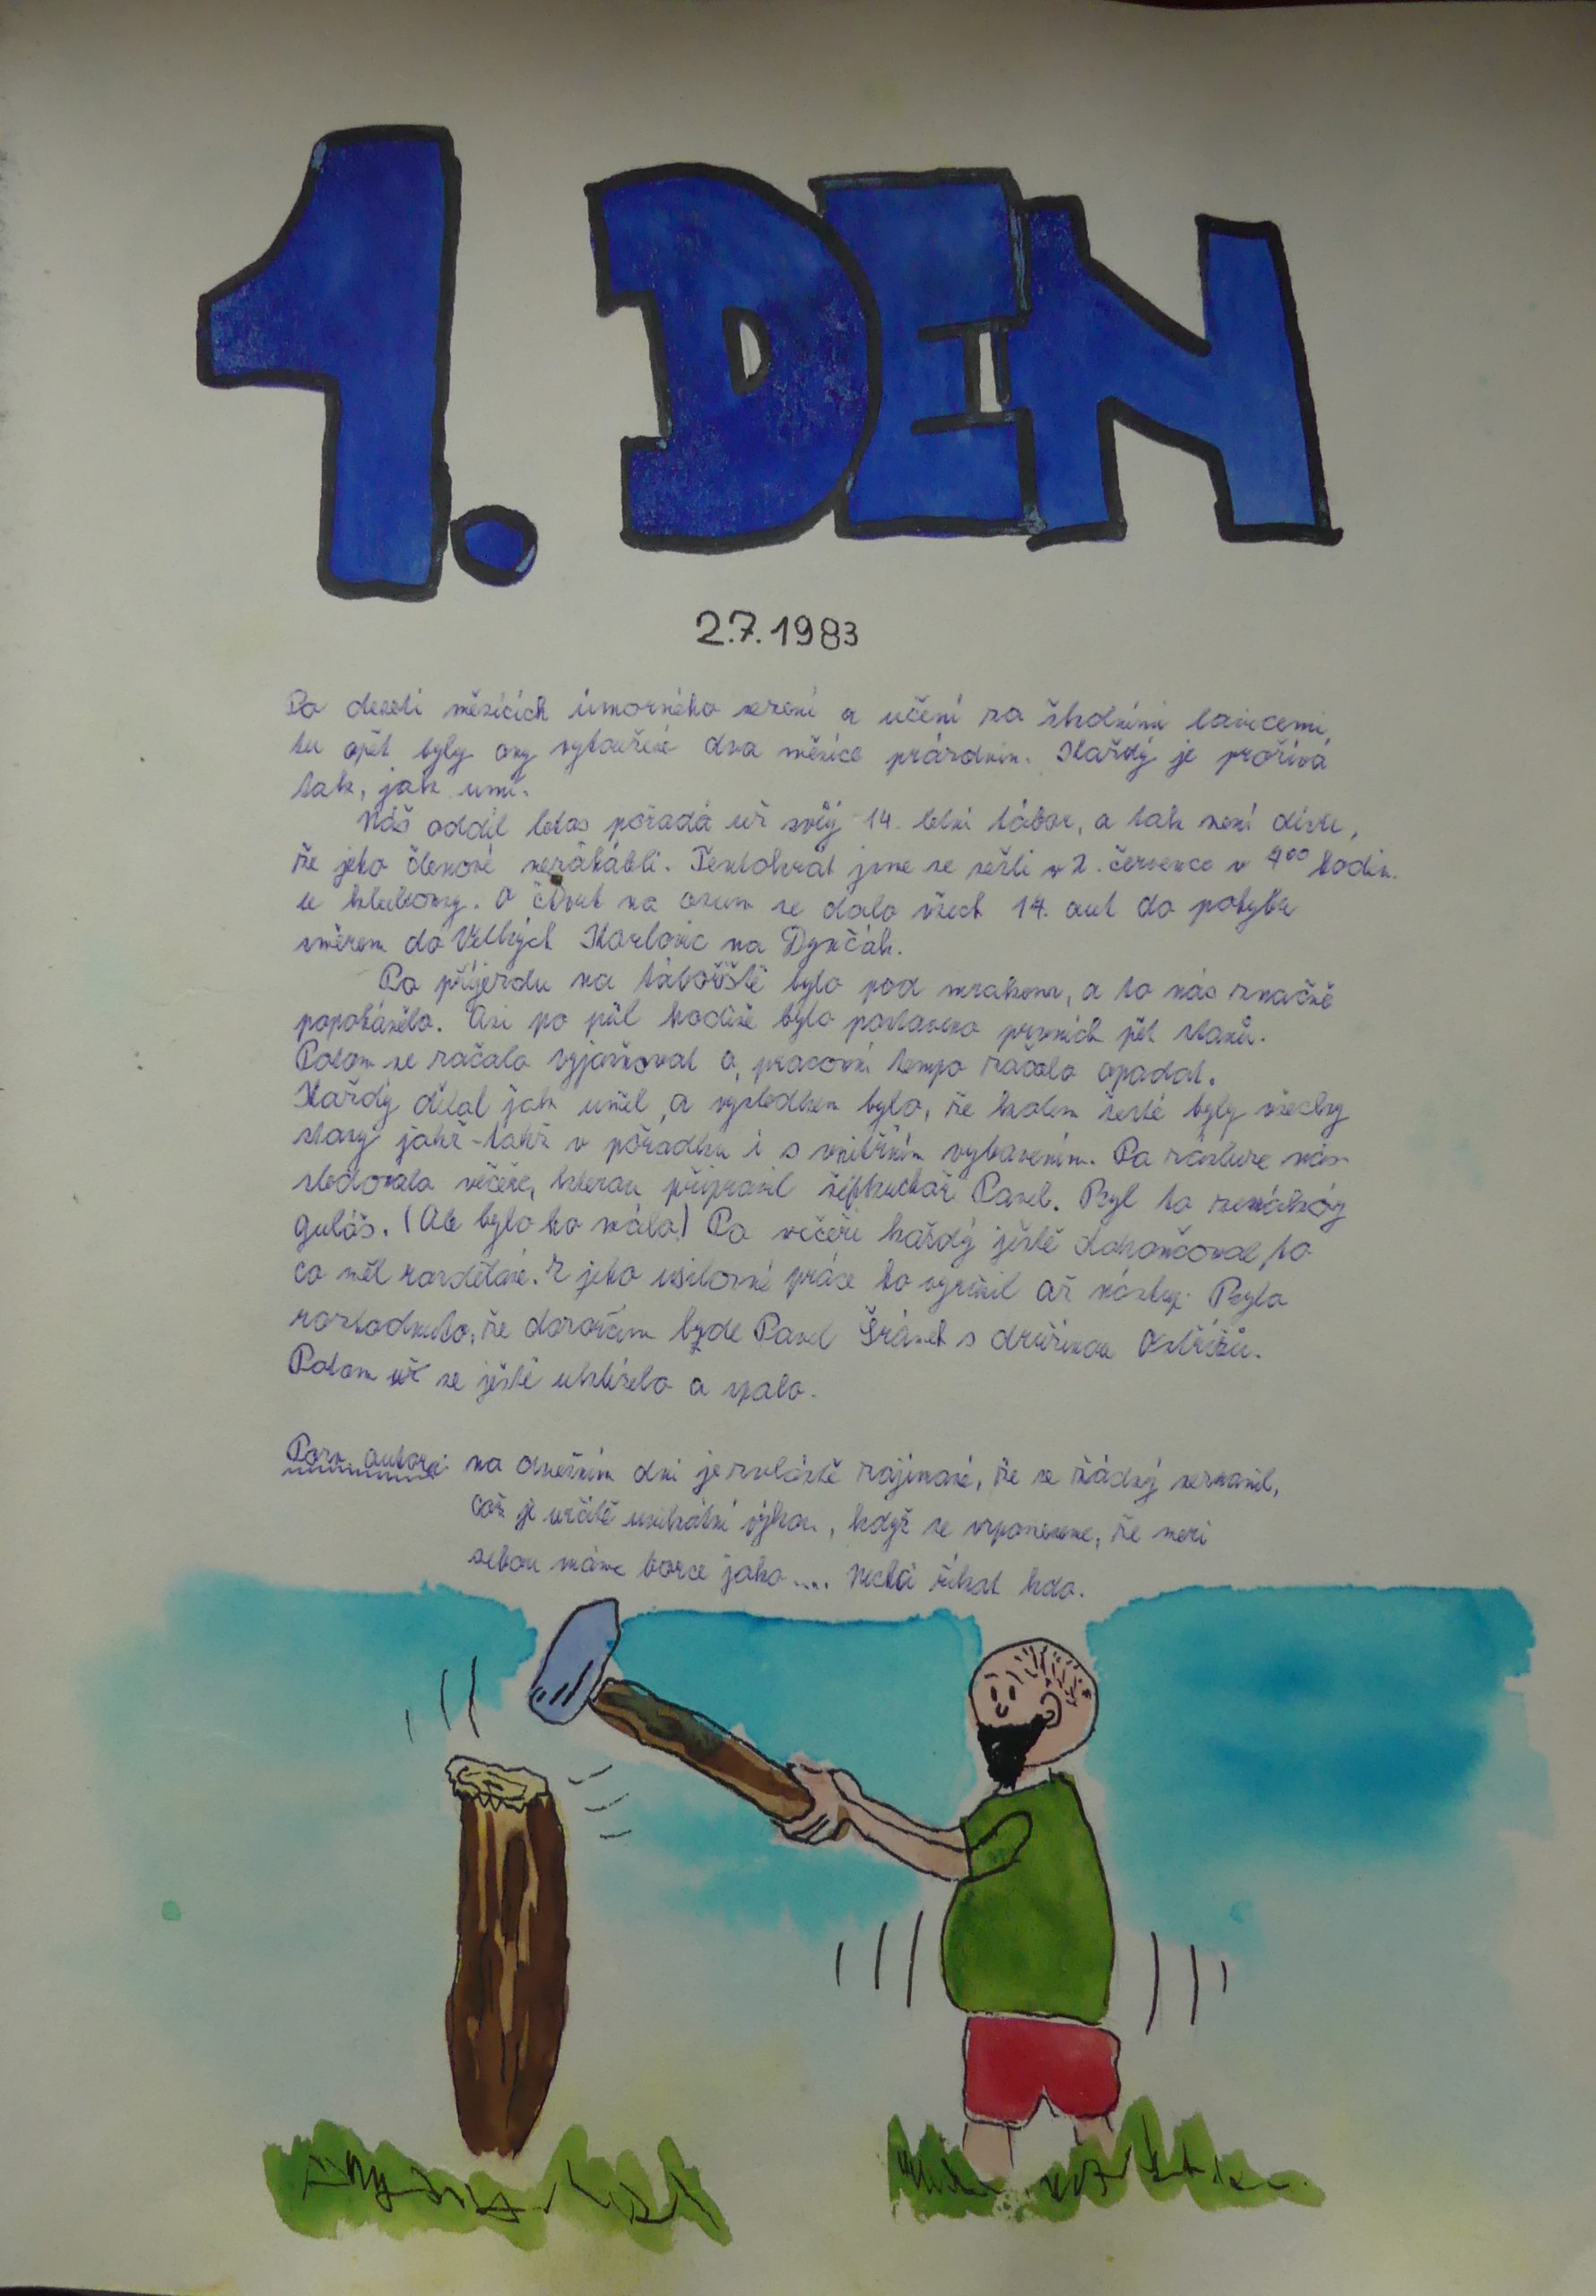 1. DEN
2.7.1983
Po deseti měsících úmorného sezení a učení za školními lavicemi,
tu opět byly ony vytoužené dva měsíce prázdnin. Každý je prožívá
tak, jak umí.
Náš oddíl letos pořadá už svůj 14. letní tábor, a tak není divu,
že jeho členové nezaháleli. Tentokrát jsme se sešli 2. července v hodin.
u klubovny. O čtvrt na osum se dalo všech 14. aut do pohybu
směrem do Velkých Karlovic na Dynčák.
Po příjezdu na tábořiště bylo pod mrakem, a to nás značně
popohánělo. Asi po půl hodině bylo postaveno prvních pět stanů.
Potom se začalo vyjasňovat a pracovní tempo začalo opadat.
Každý dělal jak uměl a vysledkem bylo, že kolem šesté byly všechny
stany jakž-takž v pořádku i s vnitřním vybavením. Po zásluze nás
sledovala večeře, kterou připravil šéfkuchař Pavel. Byl to
guláš. (Ale bylo ho málo) Po večeři každý ještě dokončoval to
co měl rozdělané. Z jeho usilovné práce ho vyrušil až nástup. Bylo
rozhodnuto, že dozorčím byde Pavel Šránek s družinou Ostřížů.
Potom už se ještě uklízelo a spalo.
Pozn. autora: na dnešním dni je zvláště zajímavé, že se žádný nezranil,
což je určitě unikátní výkon, když se vzpomeneme, že mezi
sebou máme borce jako.... Nechci říkat kdo.